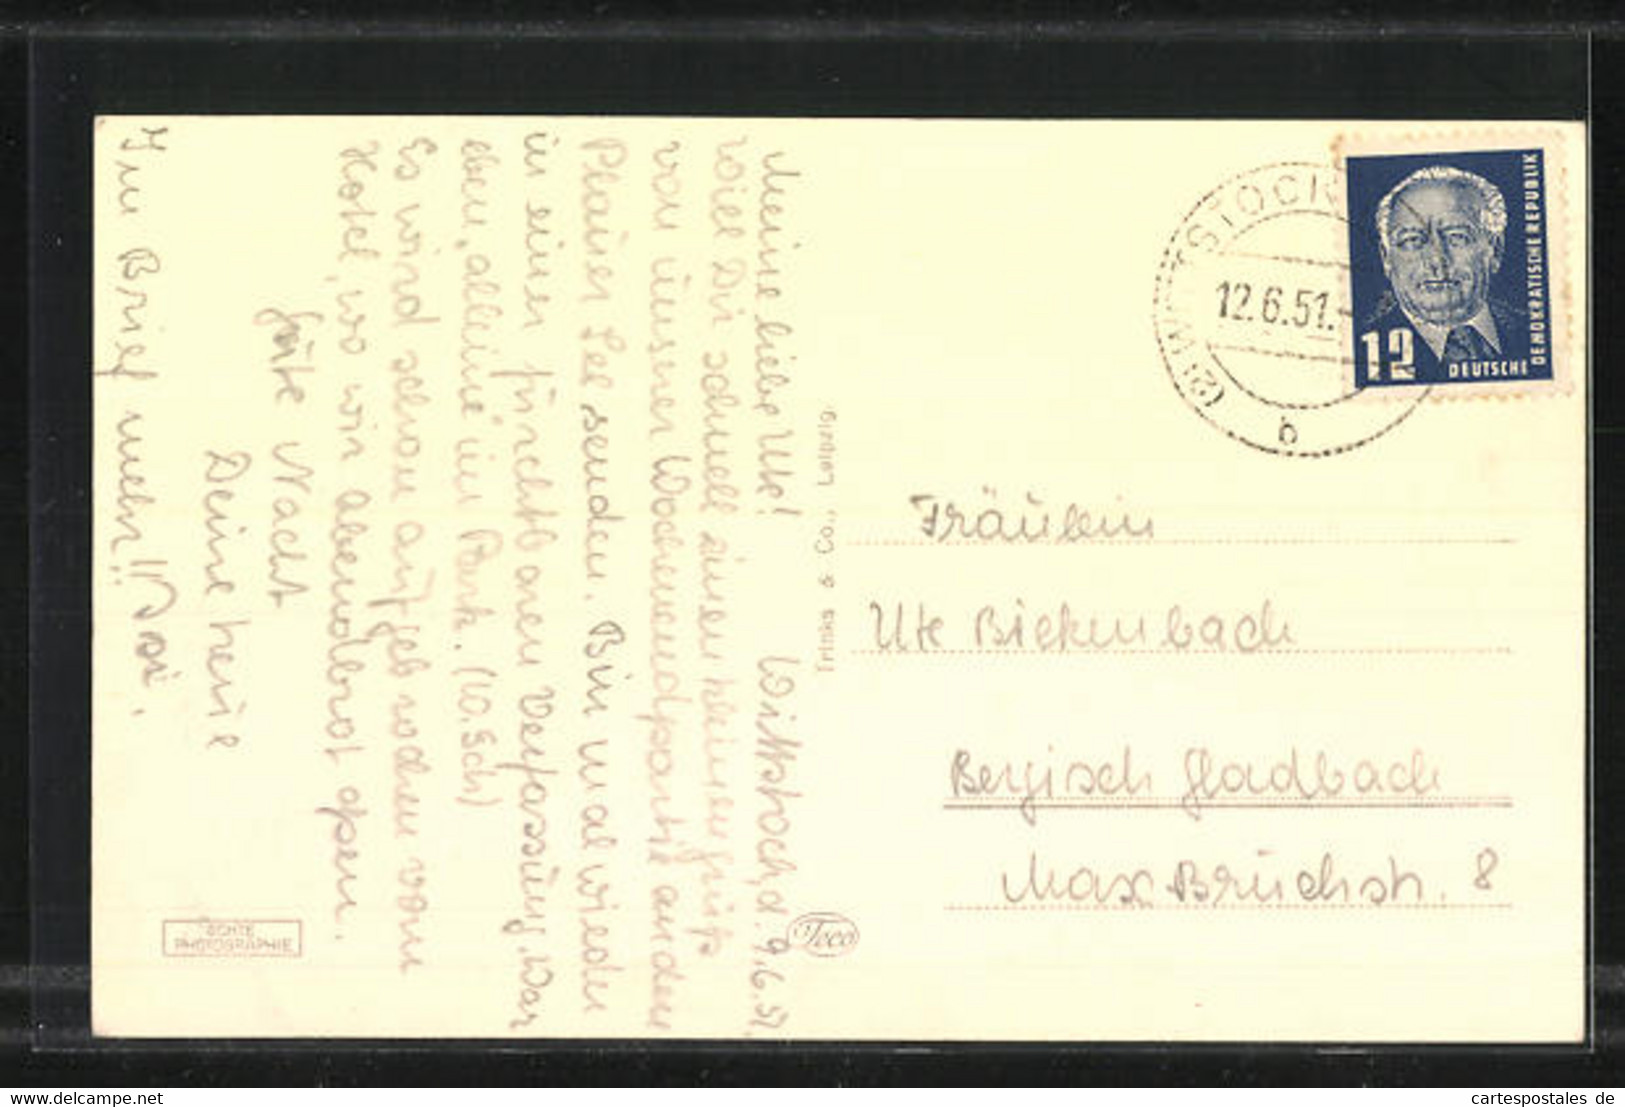 Meine liebe Ute! Wittstock, d. 9.6.51.
Will Dir schnell einen kleinen Gruß
von unserer Wochenendpartie an den
Plauer See senden. Bin mal wieder
in einer furchtbaren Verfassung. War
eben „alleine“ im Park. (W. Sch)
Es wird schon auf
Hotel, wo wir Abendbrot
Gute Nacht
Deine
Im Brief mehr!!
ECHTE
PHOTOGRAPHIE
Trinks & Co., Leipzig
Teco
(2) WITTSTOCK
12.6.51.-
b
12
DEUTSCHE
DEMOKRATISCHE REPUBLIK
Fräulein
Ute Bickenbach
Bergisch Gladbach
Max Bruchstr. 8
cartespostales de
cartespostales de